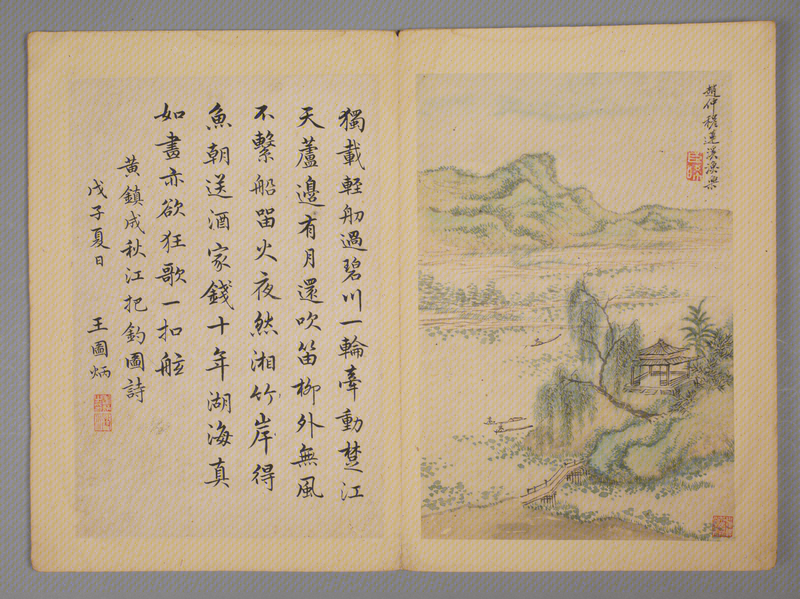 趙仲穆蓮溪漁樂
獨載輕舠過碧川一輪牽動楚江
天蘆邊有月還吹笛柳外無風
不繫船留火夜然湘竹岸得
魚朝送酒家錢十年湖海真
如畫亦欲狂歌一扣舷
黃鎮成秋江把釣圖詩
戊子夏日 王圖炳